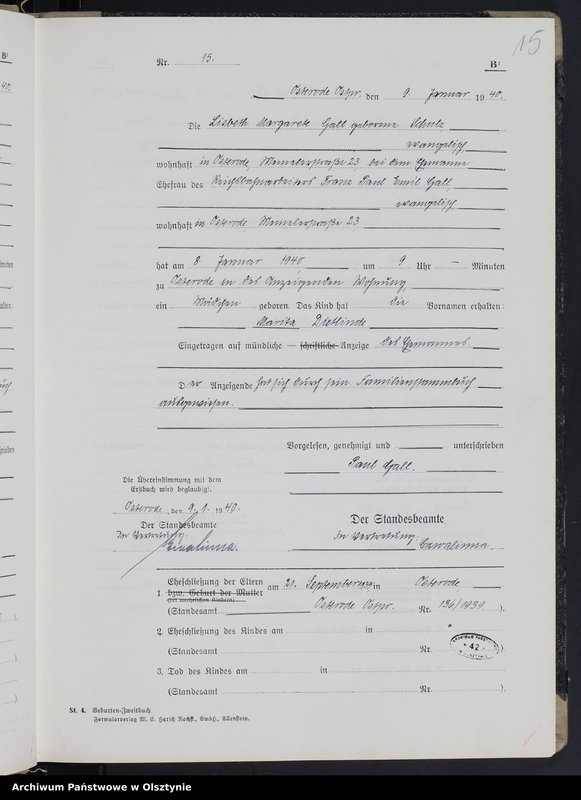 15
Nr. 15. B¹
Osterode Ostpr. den 9. Januar 1940.
Die Lisbeth Margarete Gall geborene Schulz,
evangelisch,
wohnhaft in Osterode, Memelerstraße 23, bei dem Ehemanne
Ehefrau des Reichsbahnarbeiters Franz Paul Emil Gall,
evangelisch,
wohnhaft in Osterode Memelerstraße 23
hat am 8. Januar 1940 um 9 Uhr — Minuten
zu Osterode in des Anzeigenden Wohnung
ein Mädchen geboren. Das Kind hat die Vornamen erhalten:
Marita Dietlinde
Eingetragen auf mündliche — schriftliche — Anzeige des Ehemannes.
Der Anzeigende hat sich durch sein Familienstammbuch
ausgewiesen.
Vorgelesen, genehmigt und unterschrieben
Paul Gall.
Die Übereinstimmung mit dem
Erstbuch wird beglaubigt.
Osterode, den 9. 1. 1940.
Der Standesbeamte
In Vertretung:
Czwalinna.
Der Standesbeamte
In Vertretung:
Czwalinna.
1. Eheschließung der Eltern am 21. September 1939 in Osterode
bzw. Geburt der Mutter
(bei unehelichen Kindern)
(Standesamt Osterode Ostpr. Nr. 136/1939.)
2. Eheschließung des Kindes am in
(Standesamt Nr. ).
3. Tod des Kindes am in
(Standesamt Nr. ).
42
St. 4. Geburten-Zweitbuch.
Formularverlag W. E. Harich Nachfl., GmbH., Allenstein.
Archiwum Państwowe w Olsztynie